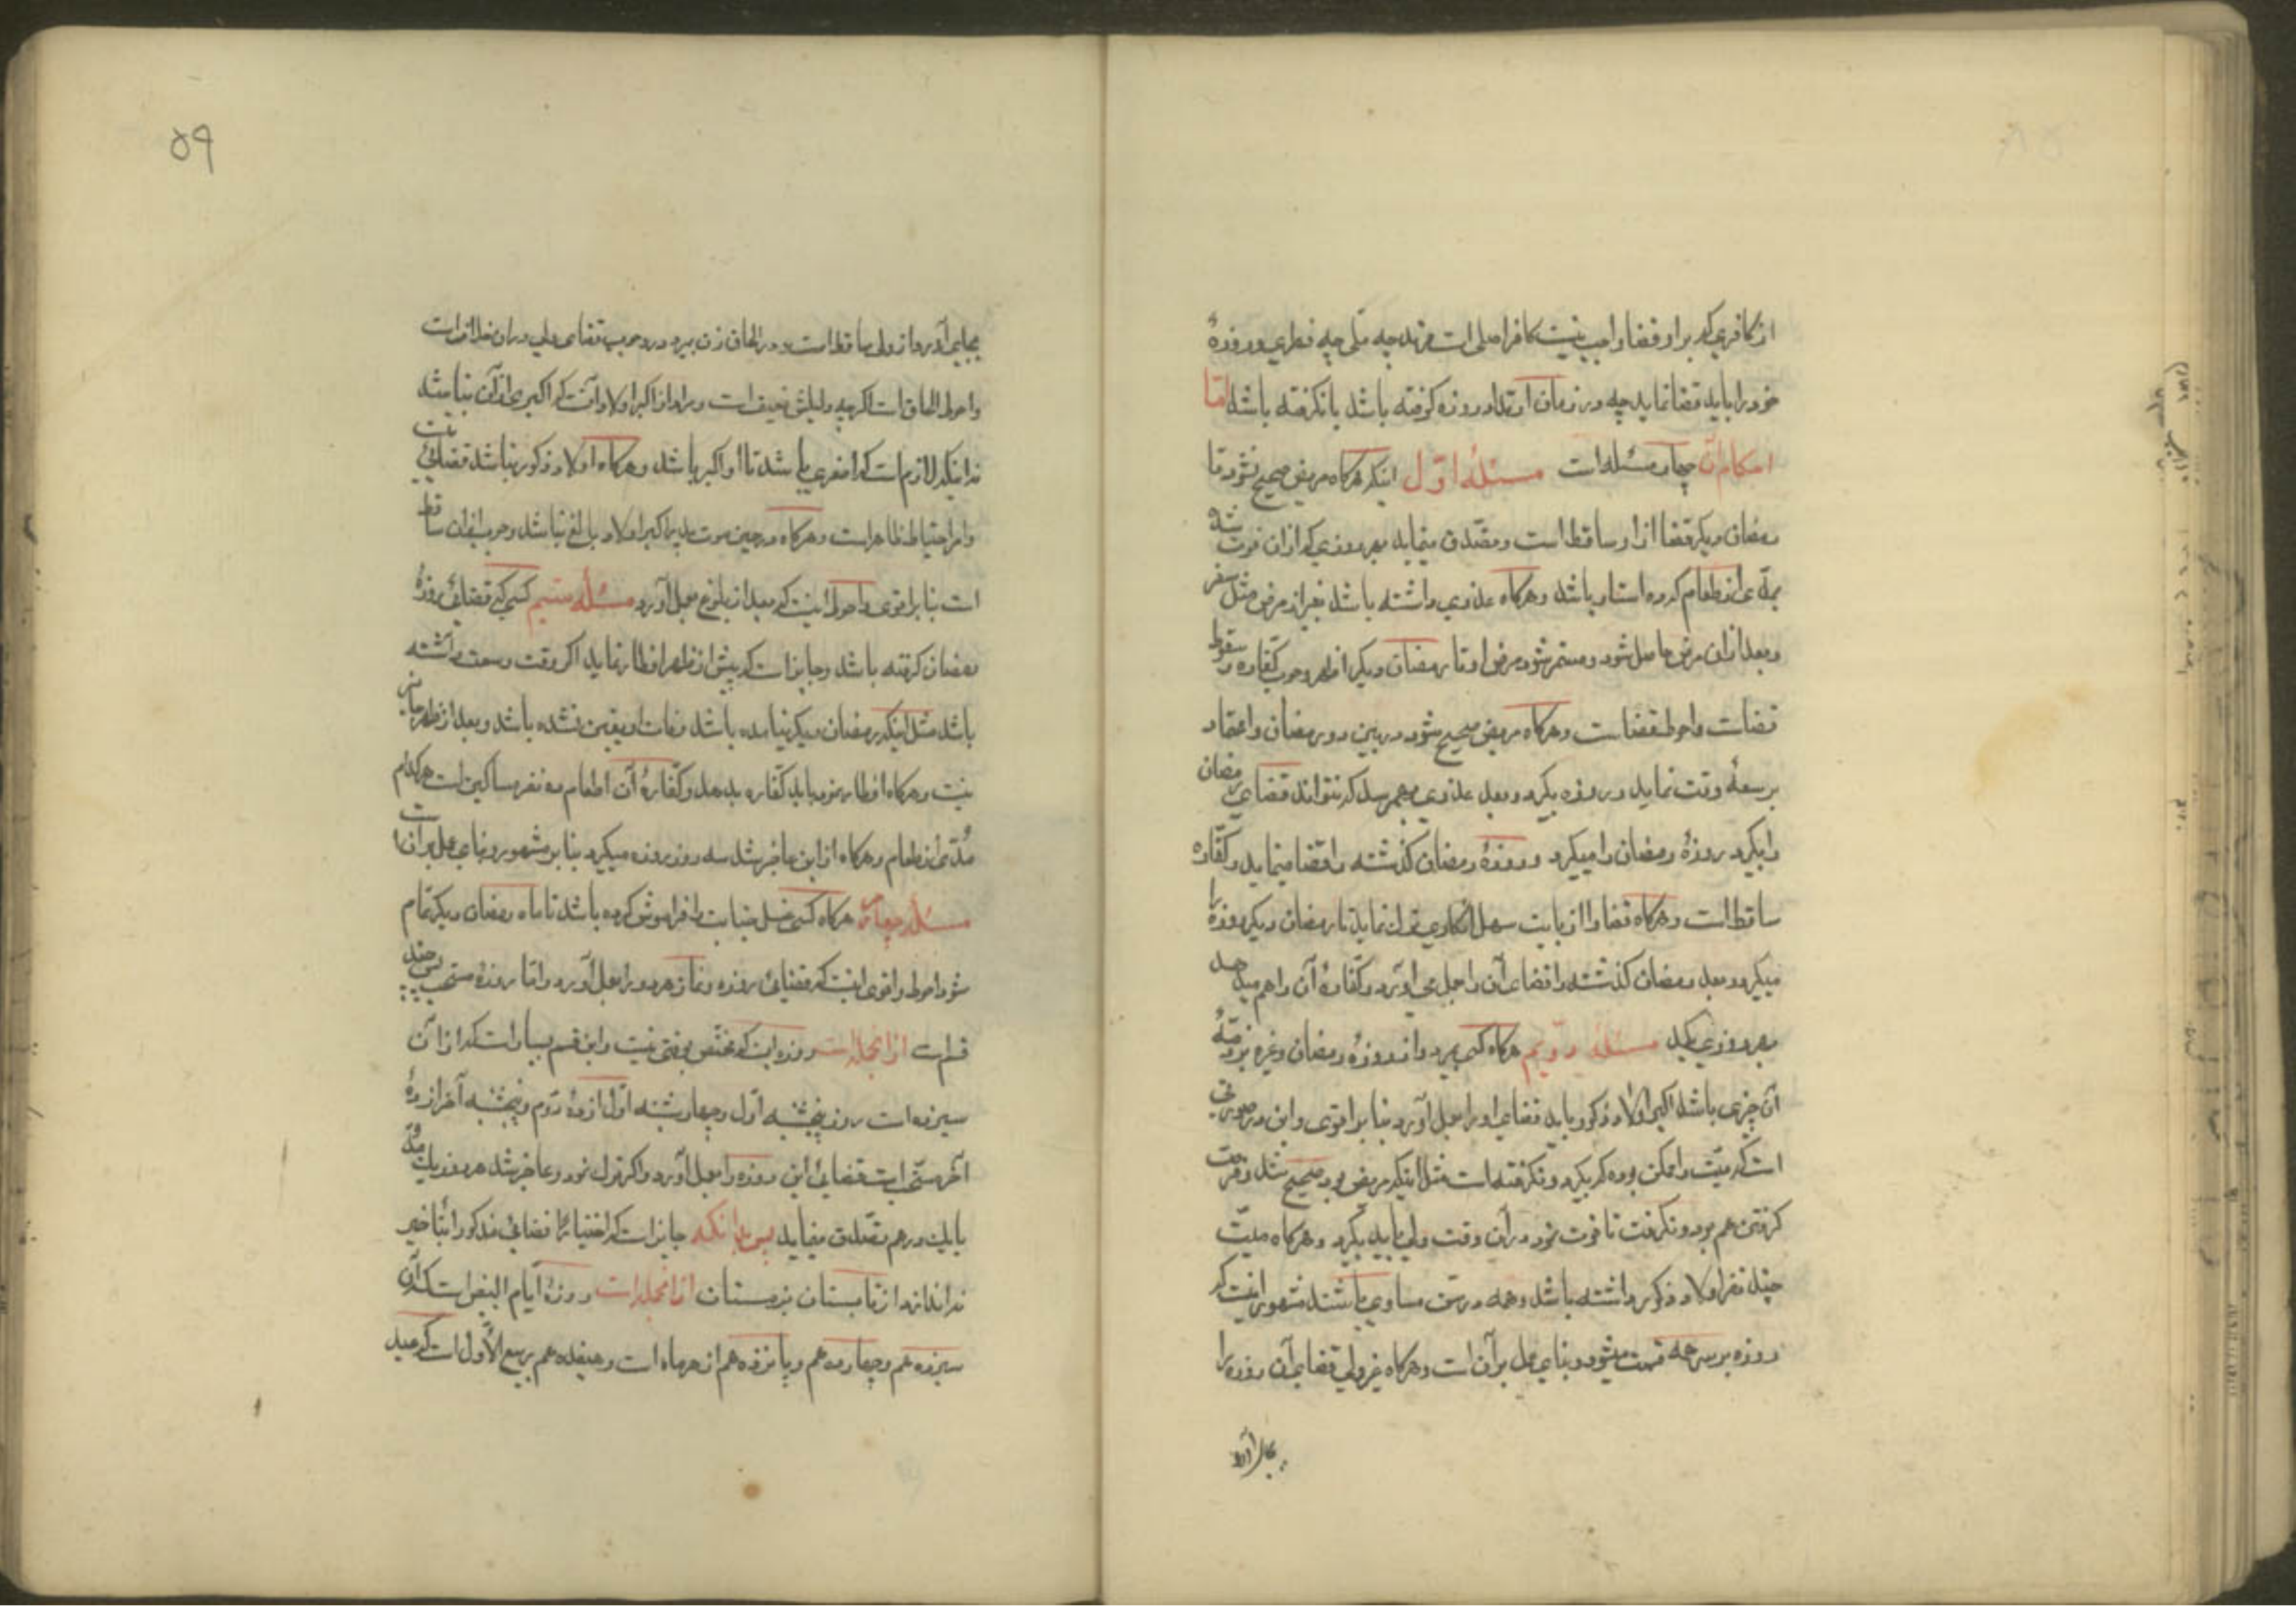 از کافری که بر او قضا واجب نیست کافر اصلی است مرتد چه ملی چه فطری و روزهٔ
خود را باید قضا نماید چه در زمان ارتداد روزه گرفته باشد یا نگرفته باشد امّا
احکام آن چهار مسئله است مسئلهٔ اوّل اینکه هرگاه مریض صحیح نشود تا
رمضان دیگر قضا از او ساقط است و تصدّق مینماید بهر روزی که از آن فوت شده
بمدّی از طعام که ده استار باشد و هرگاه عذری داشته باشد بغیر از مرض مثل سفر
و بعد از آن مرض حاصل شود و مستمر شود مرض او تا رمضان دیگر اظهر وجوب کفّاره و سقوط
قضاست و احوط قضاست و هرگاه مریض صحیح شود در بین دو رمضان و اعتقاد
بر سعهٔ وقت نماید و روزه بگیرد و بعد عذری بهم رسد که نتواند قضای رمضان
را بگیرد روزهٔ رمضان را میگیرد و روزهٔ رمضان گذشته را قضا مینماید و کفّاره
ساقط است و هرگاه قضا را از بابت سهل انگاری ترک نماید تا رمضان دیگر روزه را
میگیرد و بعد رمضان گذشته را قضای آن را بعمل می آورد و کفّارهٔ آن را هم میدهد
بهر روزی یکمد مسئله دویّم هرگاه کسی بمیرد و از روزهٔ رمضان و غیره بر ذمّهٔ
آن چیزی باشد اکبر اولاد ذکور باید قضای او را بعمل آورد بنا بر اقوی و این در صورتی
است که میّت را ممکن بوده که بگیرد و نگرفته است مثل اینکه مریض بود صحیح شد و فرصت
گرفتن هم بود و نگرفت تا فوت نمود در آن وقت ولی باید بگیرد و هرگاه میّت
چند نفر اولاد ذکور داشته باشد و همه در سن مساوی باشند مشهور اینست که
روزه بر سر همه قسمت میشود و بنای عمل بر آن است و هرگاه غیر ولی قضای آن روزه را
بجای آورد
۵۹
بجای آورد از ولی ساقط است و در الحاق زن بمرد در وجوب قضای ولی در آن خلاف است
و احوط الحاق است اگرچه دلیلش ضعیف است و مراد از اکبر اولاد آنست که اکبری از آن نباشد
نه اینکه لازم است که اصغری باشد تا او اکبر باشد و هرگاه اولاد ذکور نباشد قضائی نیست
و امر احتیاط ظاهر است و هرگاه در حین موت پدر اکبر اولاد بالغ نباشد وجوب از آن ساقط
است بنا بر اقوی و احوط اینست که بعد از بلوغ بعمل آورد مسئله سیّم کسی که قضای روزهٔ
رمضان گرفته باشد و جایز است که پیش از ظهر افطار نماید اگر وقت وسعت داشته
باشد مثل اینکه رمضان دیگر نیامده باشد و فات او یقین نشده باشد و بعد از ظهر جایز
نیست و هرگاه افطار نمود باید کفّاره بدهد و کفّارهٔ آن اطعام ده نفر مساکین است هر کدام
مدّی از طعام و هرگاه از این عاجز شد سه روز روزه میگیرد بنا بر مشهور و بنای عمل بر آنست
مسئله چهارم هرگاه کسی غسل جنابت را فراموش کرده باشد تا ماه رمضان دیگر تمام
شود احوط و اقوی اینست که قضای روزه و نماز هر دو را بعمل آورد و امّا روزهٔ مستحب پس چند
قسم است از آنجمله است روزه ایست که مختص بوقتی نیست و این قسم بسیار است که از آن
سیزده است روز پنجشنبه اوّل و چهارشنبه اوّل از دههٔ دوّم و پنجشنبه آخر از دههٔ
آخر مستحب است قضای این روزه را بعمل آورد و اگر قبول نمود و عاجز شد هر روز یک مدّ
یا یک درهم تصدّق مینماید پس بدانکه جایز است که اختیارًا قضای مذکور را بتاخیر
بیاندازد از تابستان بزمستان از آنجمله است روزهٔ ایّام البیض است که آن
سیزدهم و چهاردهم و پانزدهم از هر ماه است و هفدهم ربیع الأول است که عید